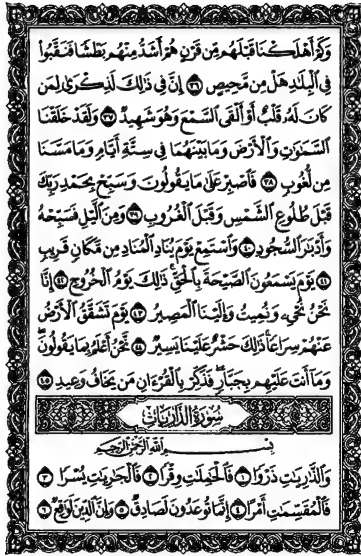 وَكَمْ أَهْلَكْنَا قَبْلَهُم مِّن قَرْنٍ هُمْ أَشَدُّ مِنْهُم بَطْشًا فَنَقَّبُوا
فِي الْبِلَادِ هَلْ مِن مَّحِيصٍ ٣٦ إِنَّ فِي ذَٰلِكَ لَذِكْرَىٰ لِمَن
كَانَ لَهُ قَلْبٌ أَوْ أَلْقَى السَّمْعَ وَهُوَ شَهِيدٌ ٣٧ وَلَقَدْ خَلَقْنَا
السَّمَٰوَٰتِ وَالْأَرْضَ وَمَا بَيْنَهُمَا فِي سِتَّةِ أَيَّامٍ وَمَا مَسَّنَا
مِن لُّغُوبٍ ٣٨ فَاصْبِرْ عَلَىٰ مَا يَقُولُونَ وَسَبِّحْ بِحَمْدِ رَبِّكَ
قَبْلَ طُلُوعِ الشَّمْسِ وَقَبْلَ الْغُرُوبِ ٣٩ وَمِنَ اللَّيْلِ فَسَبِّحْهُ
وَأَدْبَٰرَ السُّجُودِ ٤٠ وَاسْتَمِعْ يَوْمَ يُنَادِ الْمُنَادِ مِن مَّكَانٍ قَرِيبٍ
٤١ يَوْمَ يَسْمَعُونَ الصَّيْحَةَ بِالْحَقِّ ذَٰلِكَ يَوْمُ الْخُرُوجِ ٤٢ إِنَّا
نَحْنُ نُحْيِي وَنُمِيتُ وَإِلَيْنَا الْمَصِيرُ ٤٣ يَوْمَ تَشَقَّقُ الْأَرْضُ
عَنْهُمْ سِرَاعًا ذَٰلِكَ حَشْرٌ عَلَيْنَا يَسِيرٌ ٤٤ نَّحْنُ أَعْلَمُ بِمَا يَقُولُونَ
وَمَا أَنتَ عَلَيْهِم بِجَبَّارٍ فَذَكِّرْ بِالْقُرْءَانِ مَن يَخَافُ وَعِيدِ ٤٥
سُورَةُ الذَّارِيَاتِ
بِسْمِ اللَّهِ الرَّحْمَٰنِ الرَّحِيمِ
وَالذَّٰرِيَٰتِ ذَرْوًا ١ فَالْحَٰمِلَٰتِ وِقْرًا ٢ فَالْجَٰرِيَٰتِ يُسْرًا ٣
فَالْمُقَسِّمَٰتِ أَمْرًا ٤ إِنَّمَا تُوعَدُونَ لَصَادِقٌ ٥ وَإِنَّ الدِّينَ لَوَٰقِعٌ ٦